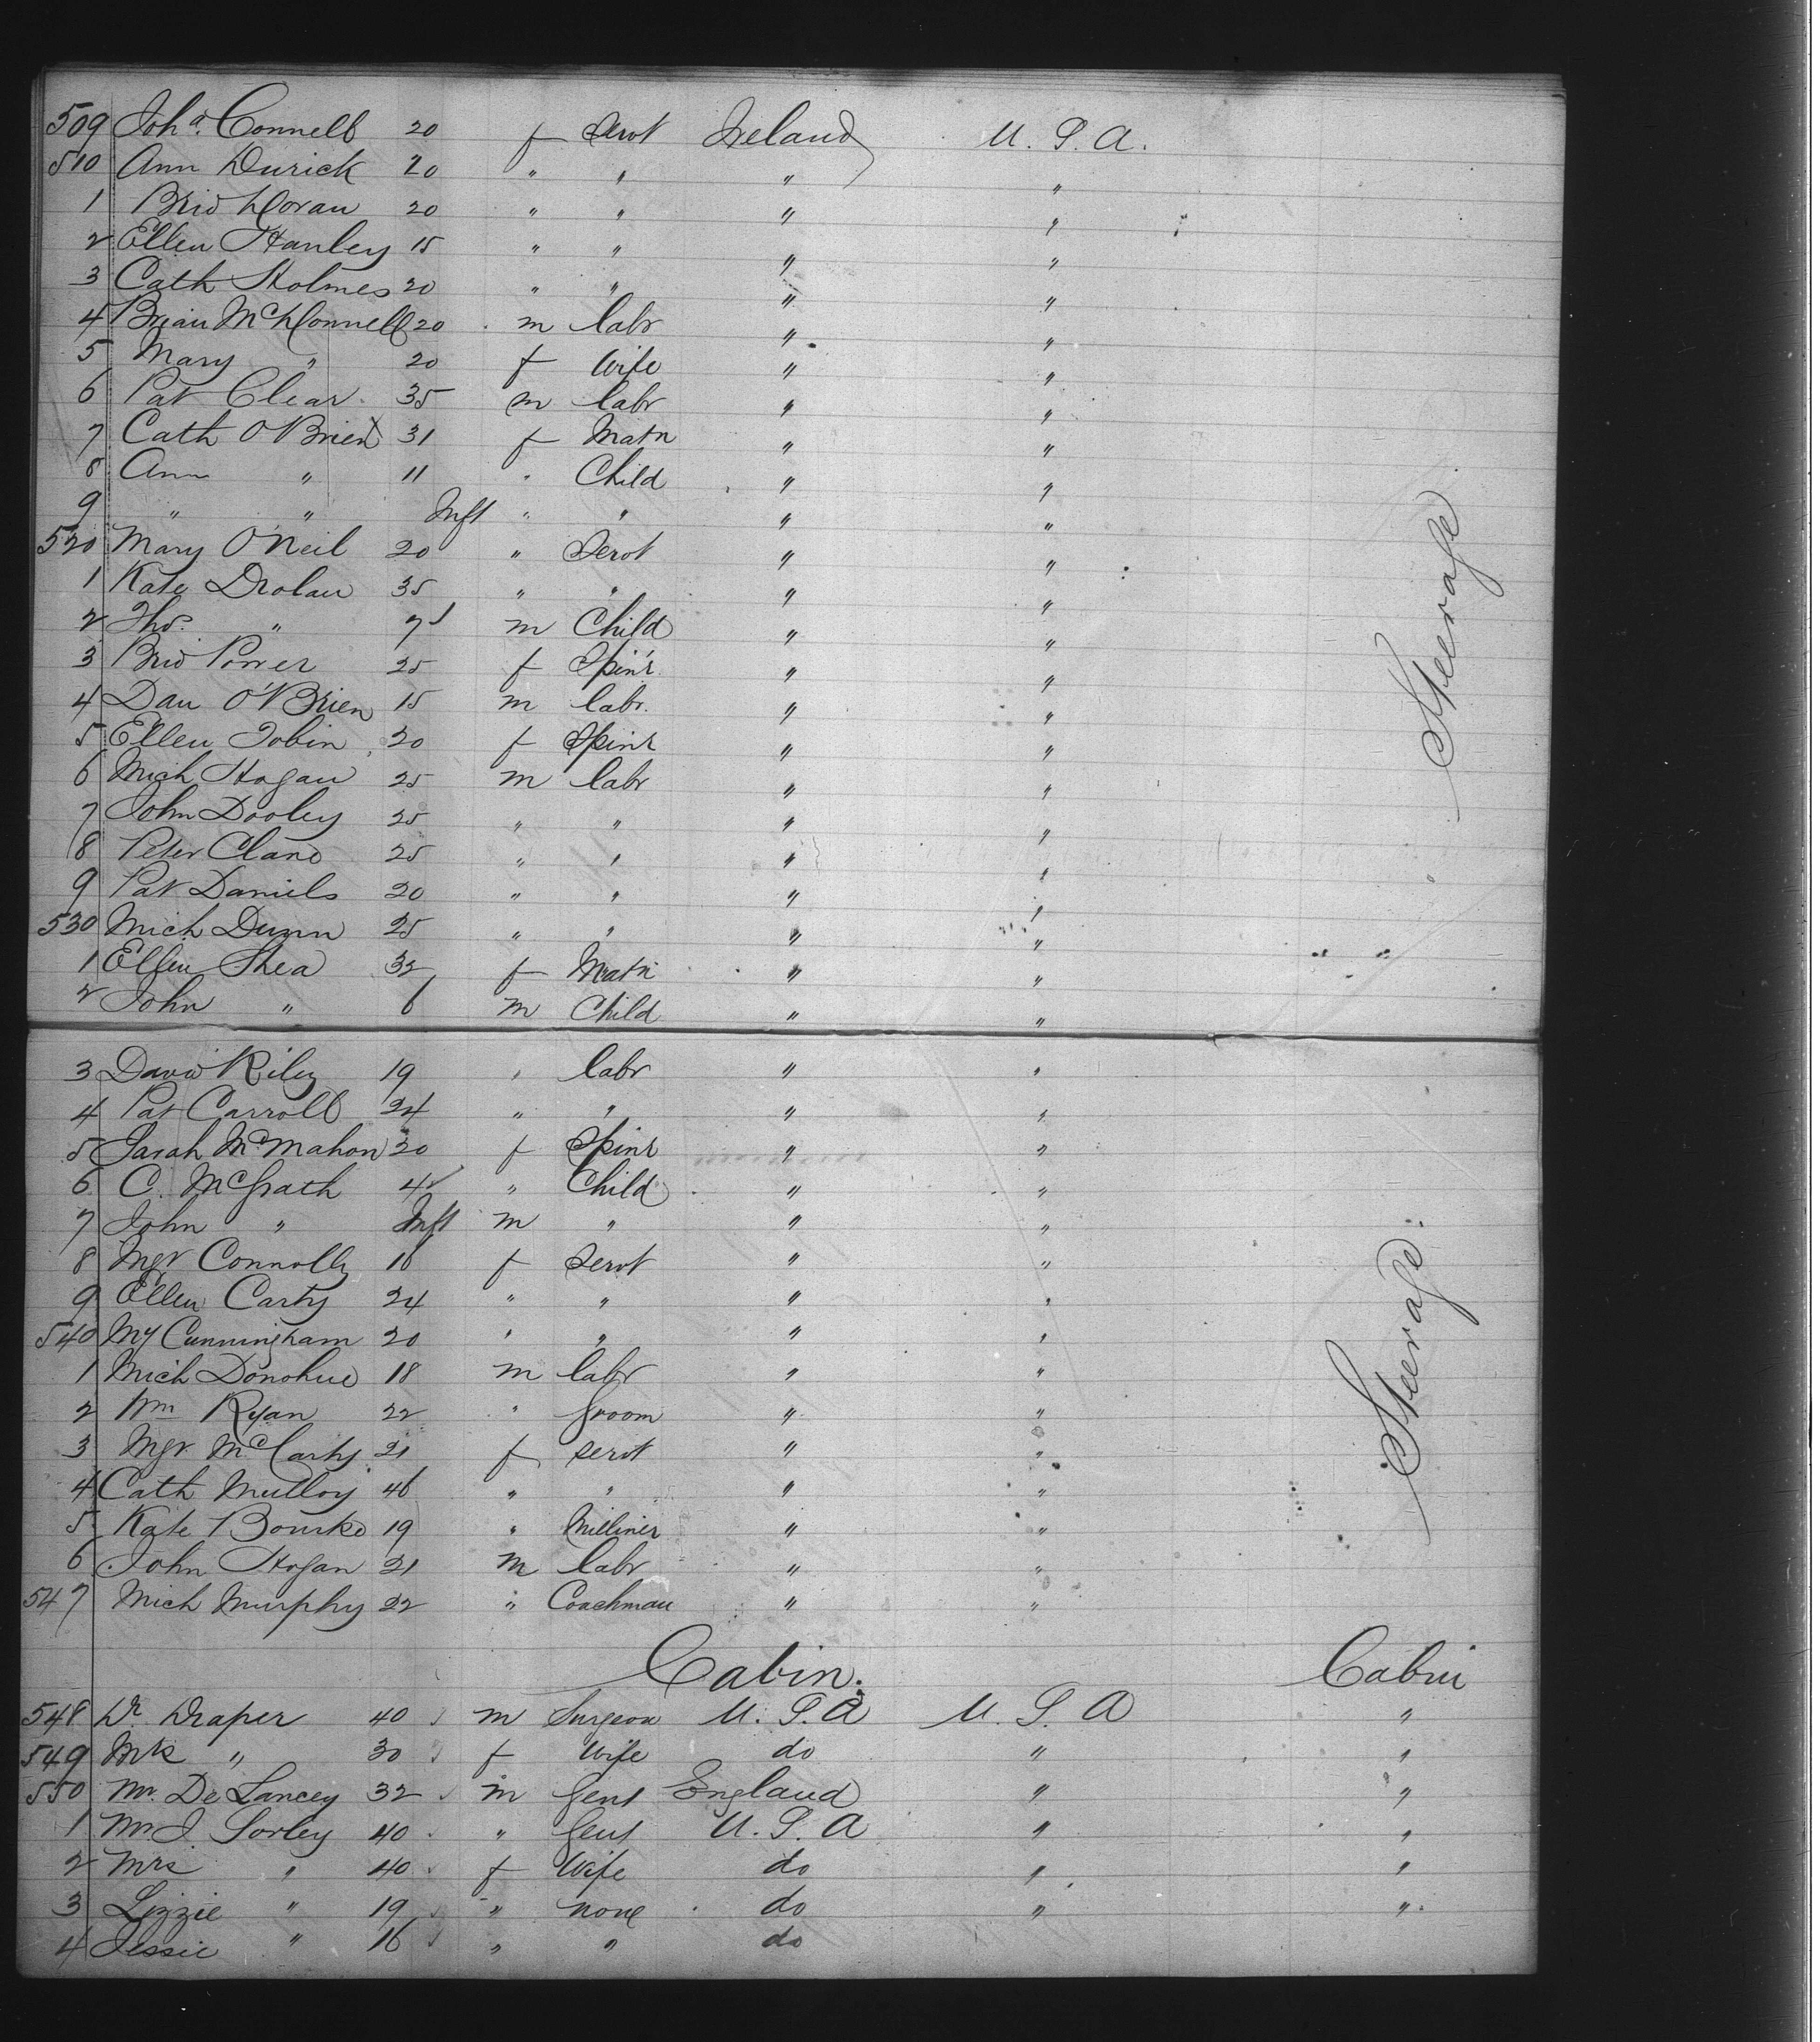 509 Joh<sup>a</sup>. Connell 20 f Servt Ireland U. S. A.
510 Ann Durick 20 " " " "
1 Brid Doran 20 " " " "
2 Ellen Hanley 15 " " " "
3 Cath Holmes 20 " " " "
4 Brian McDonnell 20 m labr " "
5 Mary " 20 f Wife " "
6 Pat Clear 35 m labr " "
7 Cath O'Brien 31 f Matn " "
8 Ann " 11 " Child " "
9 " " Inft " " " "
520 Mary O'Neil 20 " Servt " "
1 Kate Drolan 35 " " " "
2 Thos. " 7 m Child " "
3 Brid Power 25 f Spinr. " "
4 Dan O'Brien 15 m labr. " "
5 Ellen Tobin 20 f Spinr " "
6 Mich Hogan 25 m labr " "
7 John Dooley 25 " " " "
8 Peter Clano 25 " " " "
9 Pat Daniels 20 " " " "
530 Mich Dunn 25 " " " "
1 Ellen Shea 32 f Matn " "
2 John " 6 m Child " "
Steerage
3 David Riley 19 " labr " "
4 Pat Carroll 24 " " " "
5 Sarah McMahon 20 f Spinr " "
6 C. McGrath 4 " Child " "
7 John " Inft m " " "
8 Mgt Connolly 16 f Servt " "
9 Ellen Carty 24 " " " "
540 My Cunningham 20 " " " "
1 Mich Donohue 18 m labr " "
2 Wm Ryan 22 " Groom " "
3 Mgt McCarty 21 f servt " "
4 Cath Mulloy 46 " " " "
5 Kate Bourke 19 " Milliner " "
6 John Hogan 21 m labr " "
547 Mich Murphy 22 " Coachman " "
Steerage.
Cabin. Cabin
548 Dr Draper 40 m Surgeon U. S. A U. S. A "
549 Mrs " 30 f Wife do " "
550 Mr. De Lancey 32 m Gent England " "
1 Mr J. Sorley 40 " Gent U. S. A " "
2 Mrs " 40 f Wife do " "
3 Lizzie " 19 " none do " "
4 Jessie " 16 " " do